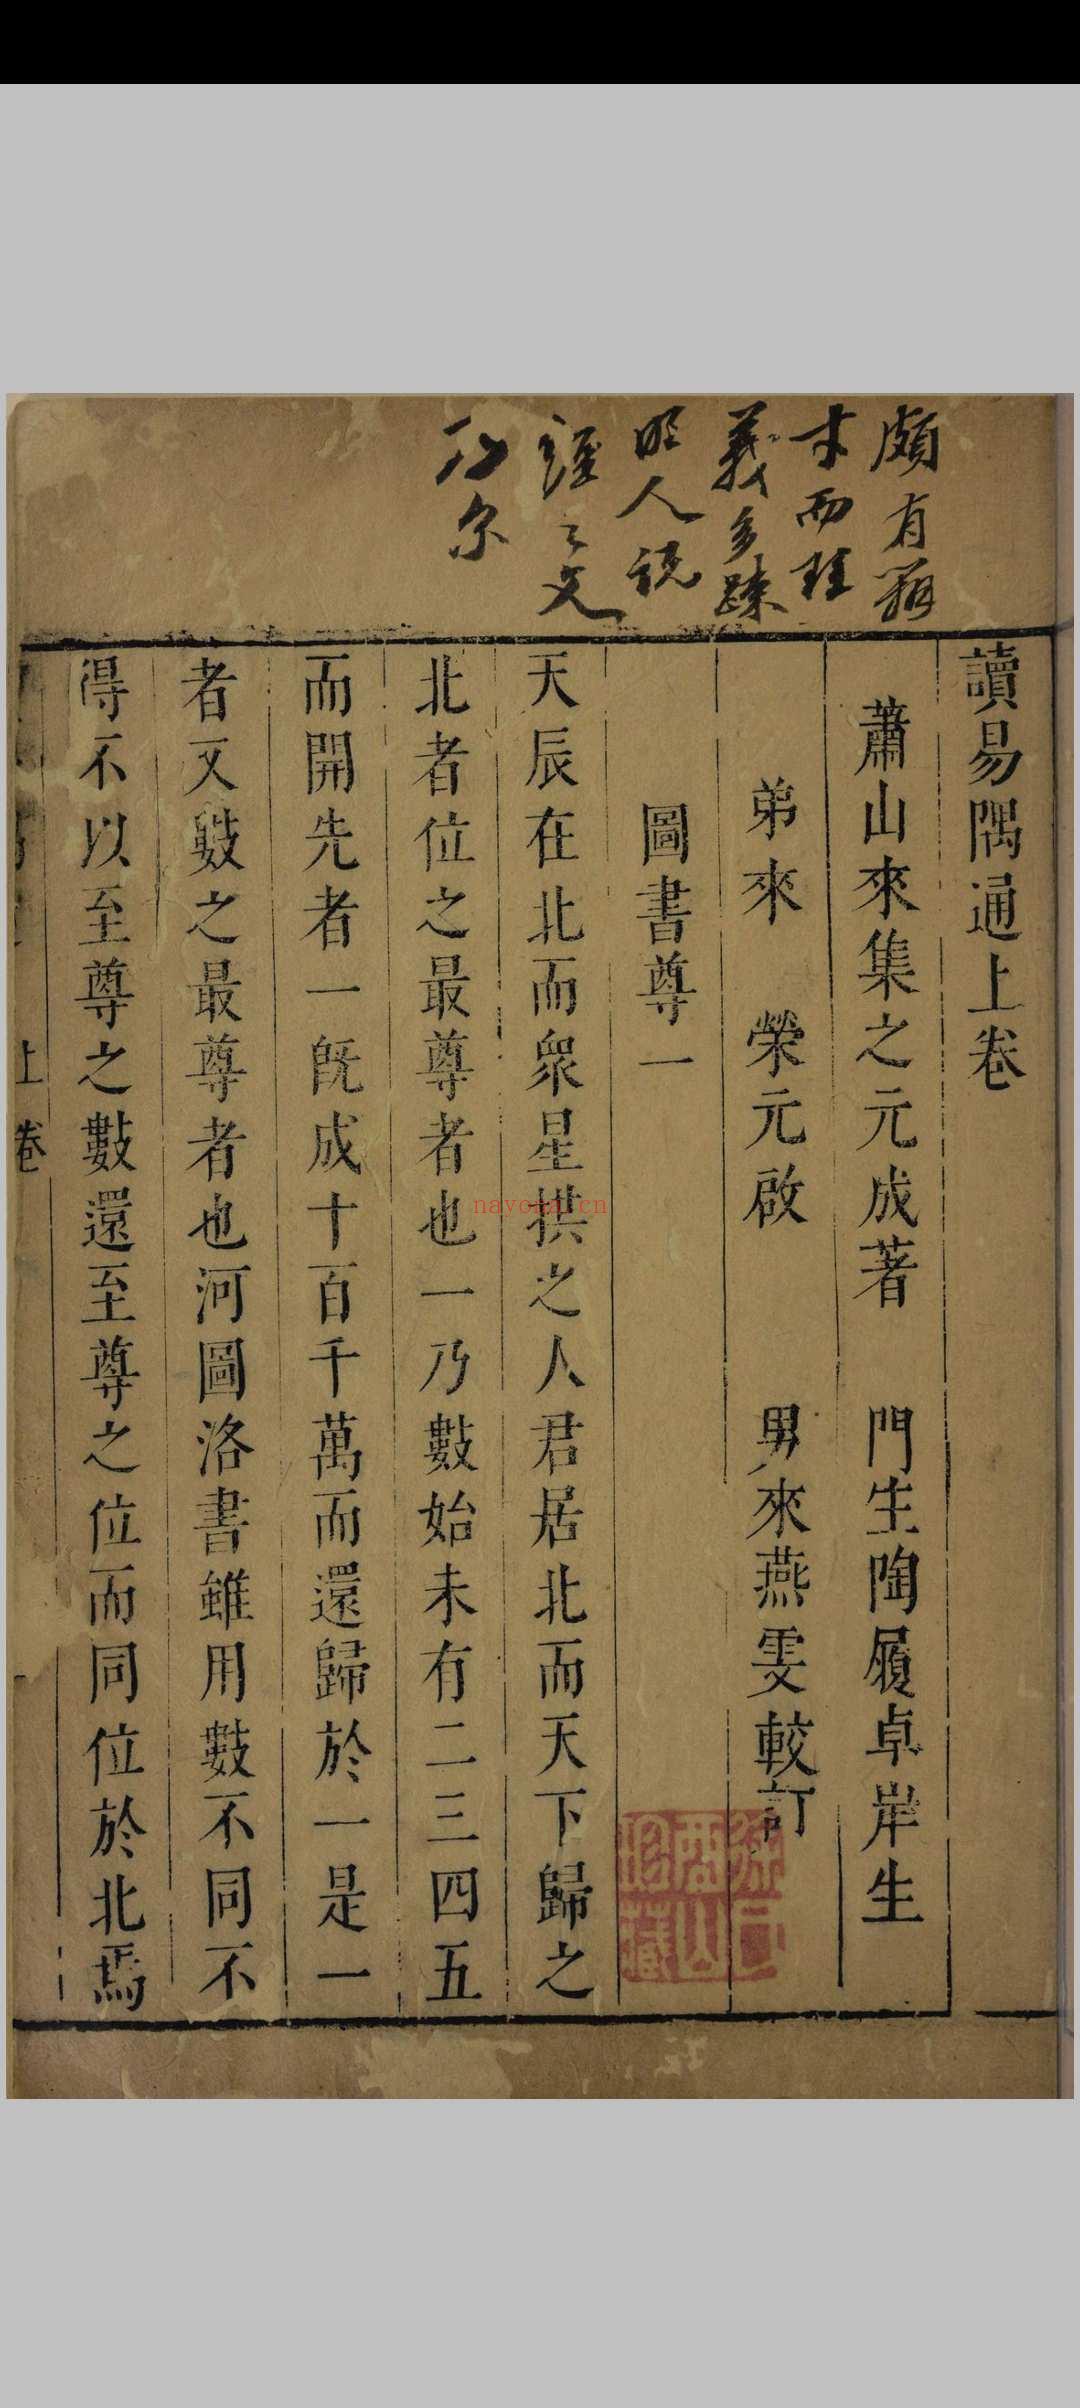 頗有辭
才而理
義多踈
明人說
經之文
尔
讀易隅通上卷
蕭山來集之元成著 門生陶履卓岸生
弟來 榮元啟 男來燕雯較訂
圖書尊一
天辰在北而眾星拱之人君居北而天下歸之
北者位之最尊者也一乃數始未有二三四五
而開先者一旣成十百千萬而還歸於一是一
者又數之最尊者也河圖洛書雖用數不同不
得不以至尊之數還至尊之位而同位於北焉
上卷